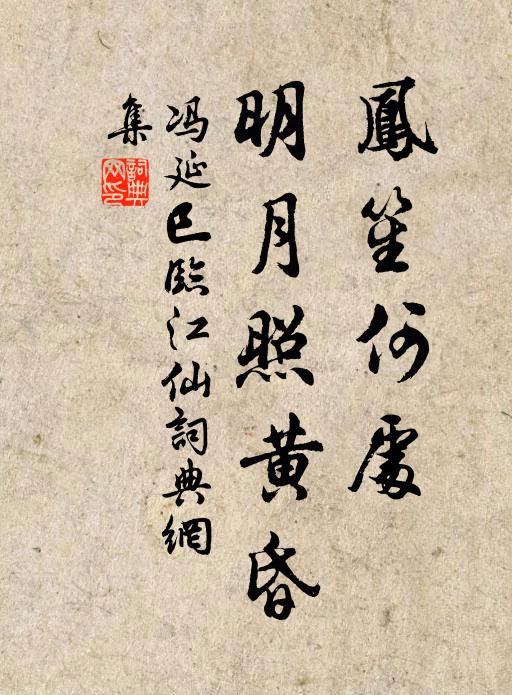 鳳笙何處
明月照黃昏
冯延巳臨江仙詞典網
集
詞典網印